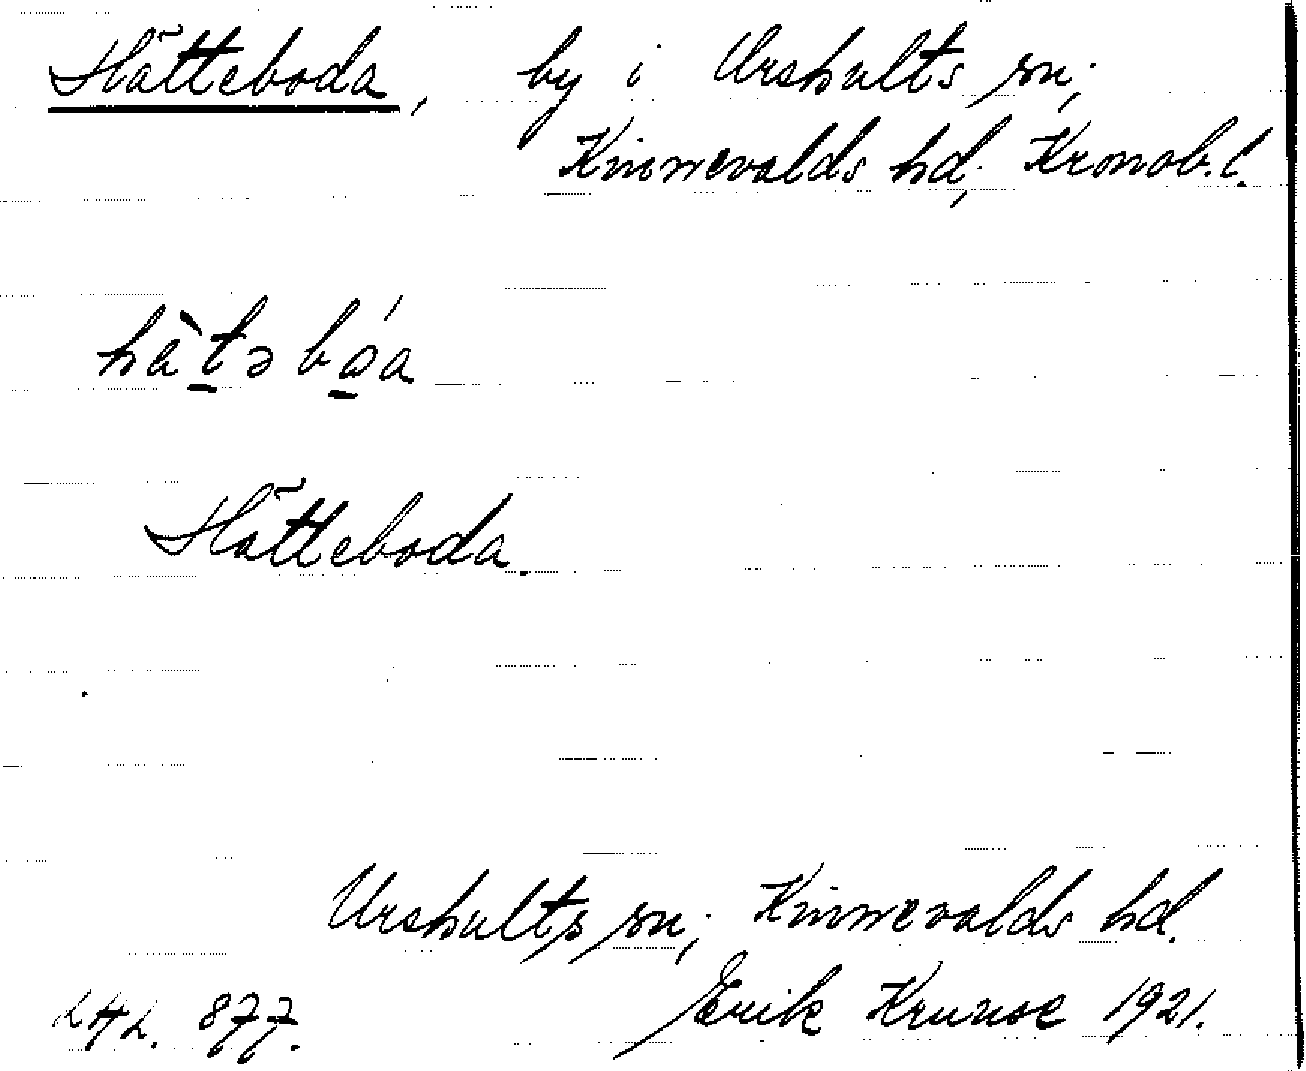 Hätteboda, by i Urshults sn;
Kinnevalds hd; Kronob. l.
hä̀tǝbǿa
Hätteboda.
Urshults sn; Kinnevalds hd.
Erik Krunse 1921.
877.